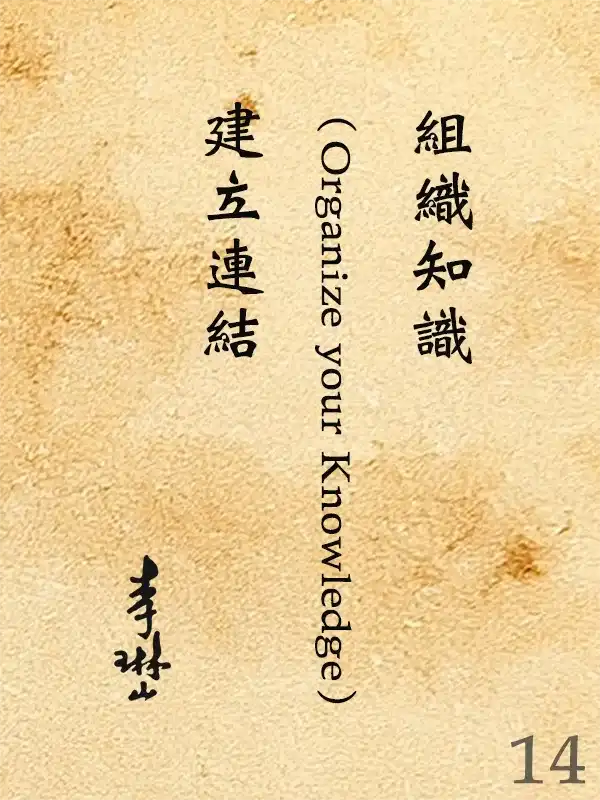 組織知識
(Organize your Knowledge)
建立連結
李琳山
14